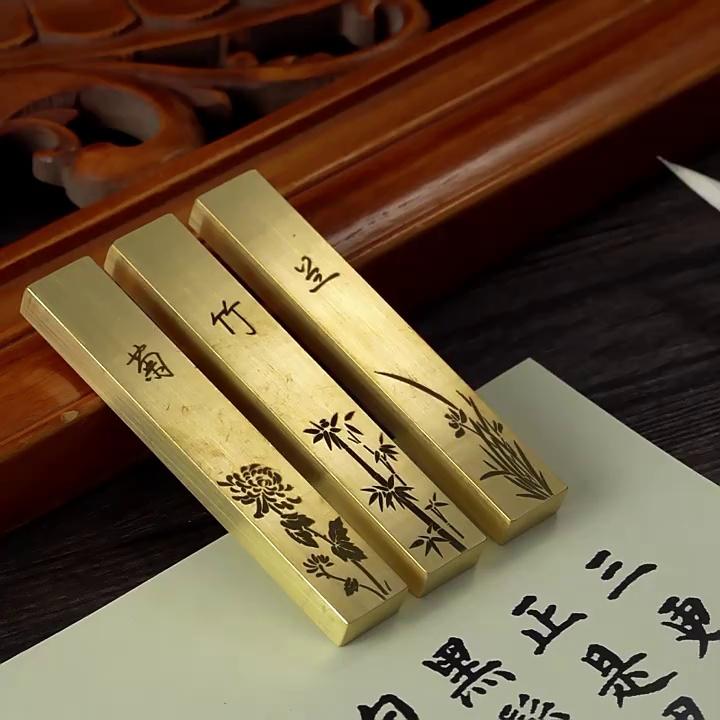 兰
竹
菊
三更
正是
黑